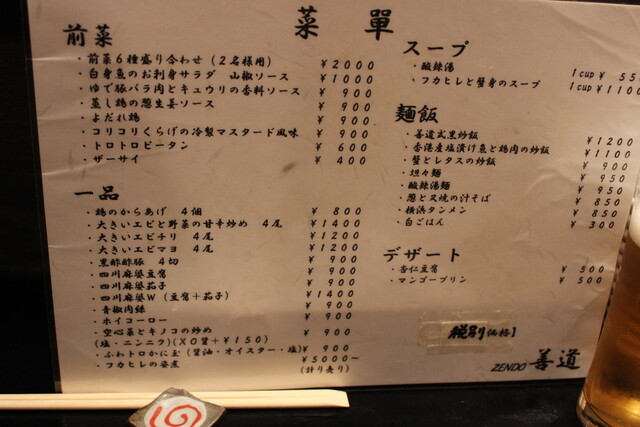 菜單
前菜
・前菜6種盛り合わせ（2名様用） ¥2000
・白身魚のお刺身サラダ 山椒ソース ¥1000
・ゆで豚バラ肉とキュウリの香料ソース ¥900
・蒸し鶏の葱生姜ソース ¥900
・よだれ鶏 ¥900
・コリコリくらげの冷製マスタード風味 ¥900
・トロトロピータン ¥600
・ザーサイ ¥400
一品
・鶏のからあげ 4個 ¥800
・大きいエビと野菜の甘辛炒め 4尾 ¥1400
・大きいエビチリ 4尾 ¥1200
・大きいエビマヨ 4尾 ¥1200
・黒酢酢豚 4切 ¥900
・四川麻婆豆腐 ¥900
・四川麻婆茄子 ¥900
・四川麻婆W（豆腐＋茄子） ¥1400
・青椒肉絲 ¥900
・ホイコーロー ¥900
・空心菜とキノコの炒め ¥900
（塩・ニンニク）（XO醤＋¥150）
・ふわトロかに玉（醤油・オイスター・塩） ¥900
・フカヒレの姿煮 ¥5000～
（計り売り）
スープ
・酸辣湯 1cup ¥55
・フカヒレと蟹身のスープ 1cup ¥1100
麺飯
・善道式黒炒飯 ¥1200
・香港産塩漬け魚と鶏肉の炒飯 ¥1100
・蟹とレタスの炒飯 ¥900
・坦々麺 ¥950
・酸辣湯麺 ¥950
・葱と叉焼の汁そば ¥850
・横浜タンメン ¥850
・白ごはん ¥300
デザート
・杏仁豆腐 ¥500
・マンゴープリン ¥500
税別価格】
ZENDO 善道